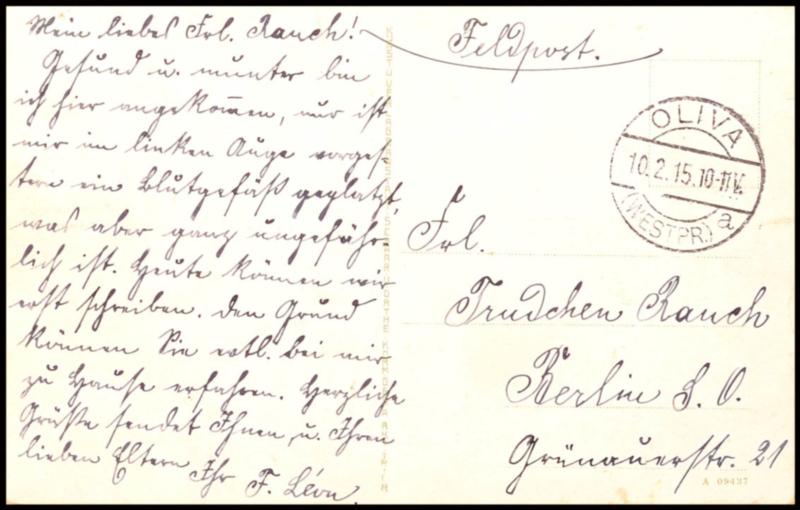 Mein liebes Frl. Rauch!
Gesund u. munter bin
ich hier angekommen, nur ist
mir im linken Auge vorges-
tern ein Blutgefäß geplatzt,
was aber ganz ungefähr-
lich ist. Heute können wir
erst schreiben. Den Grund
können Sie evtl. bei mir
zu Hause erfahren. Herzliche
Grüße sendet Ihnen u. Ihren
lieben Eltern
Ihr F. Léon.
Feldpost.
OLIVA
10.2.15.10-11V.
(WESTPR.) a
Frl.
Trudchen Rauch
Berlin S. O.
Grünauerstr. 21
A 09437